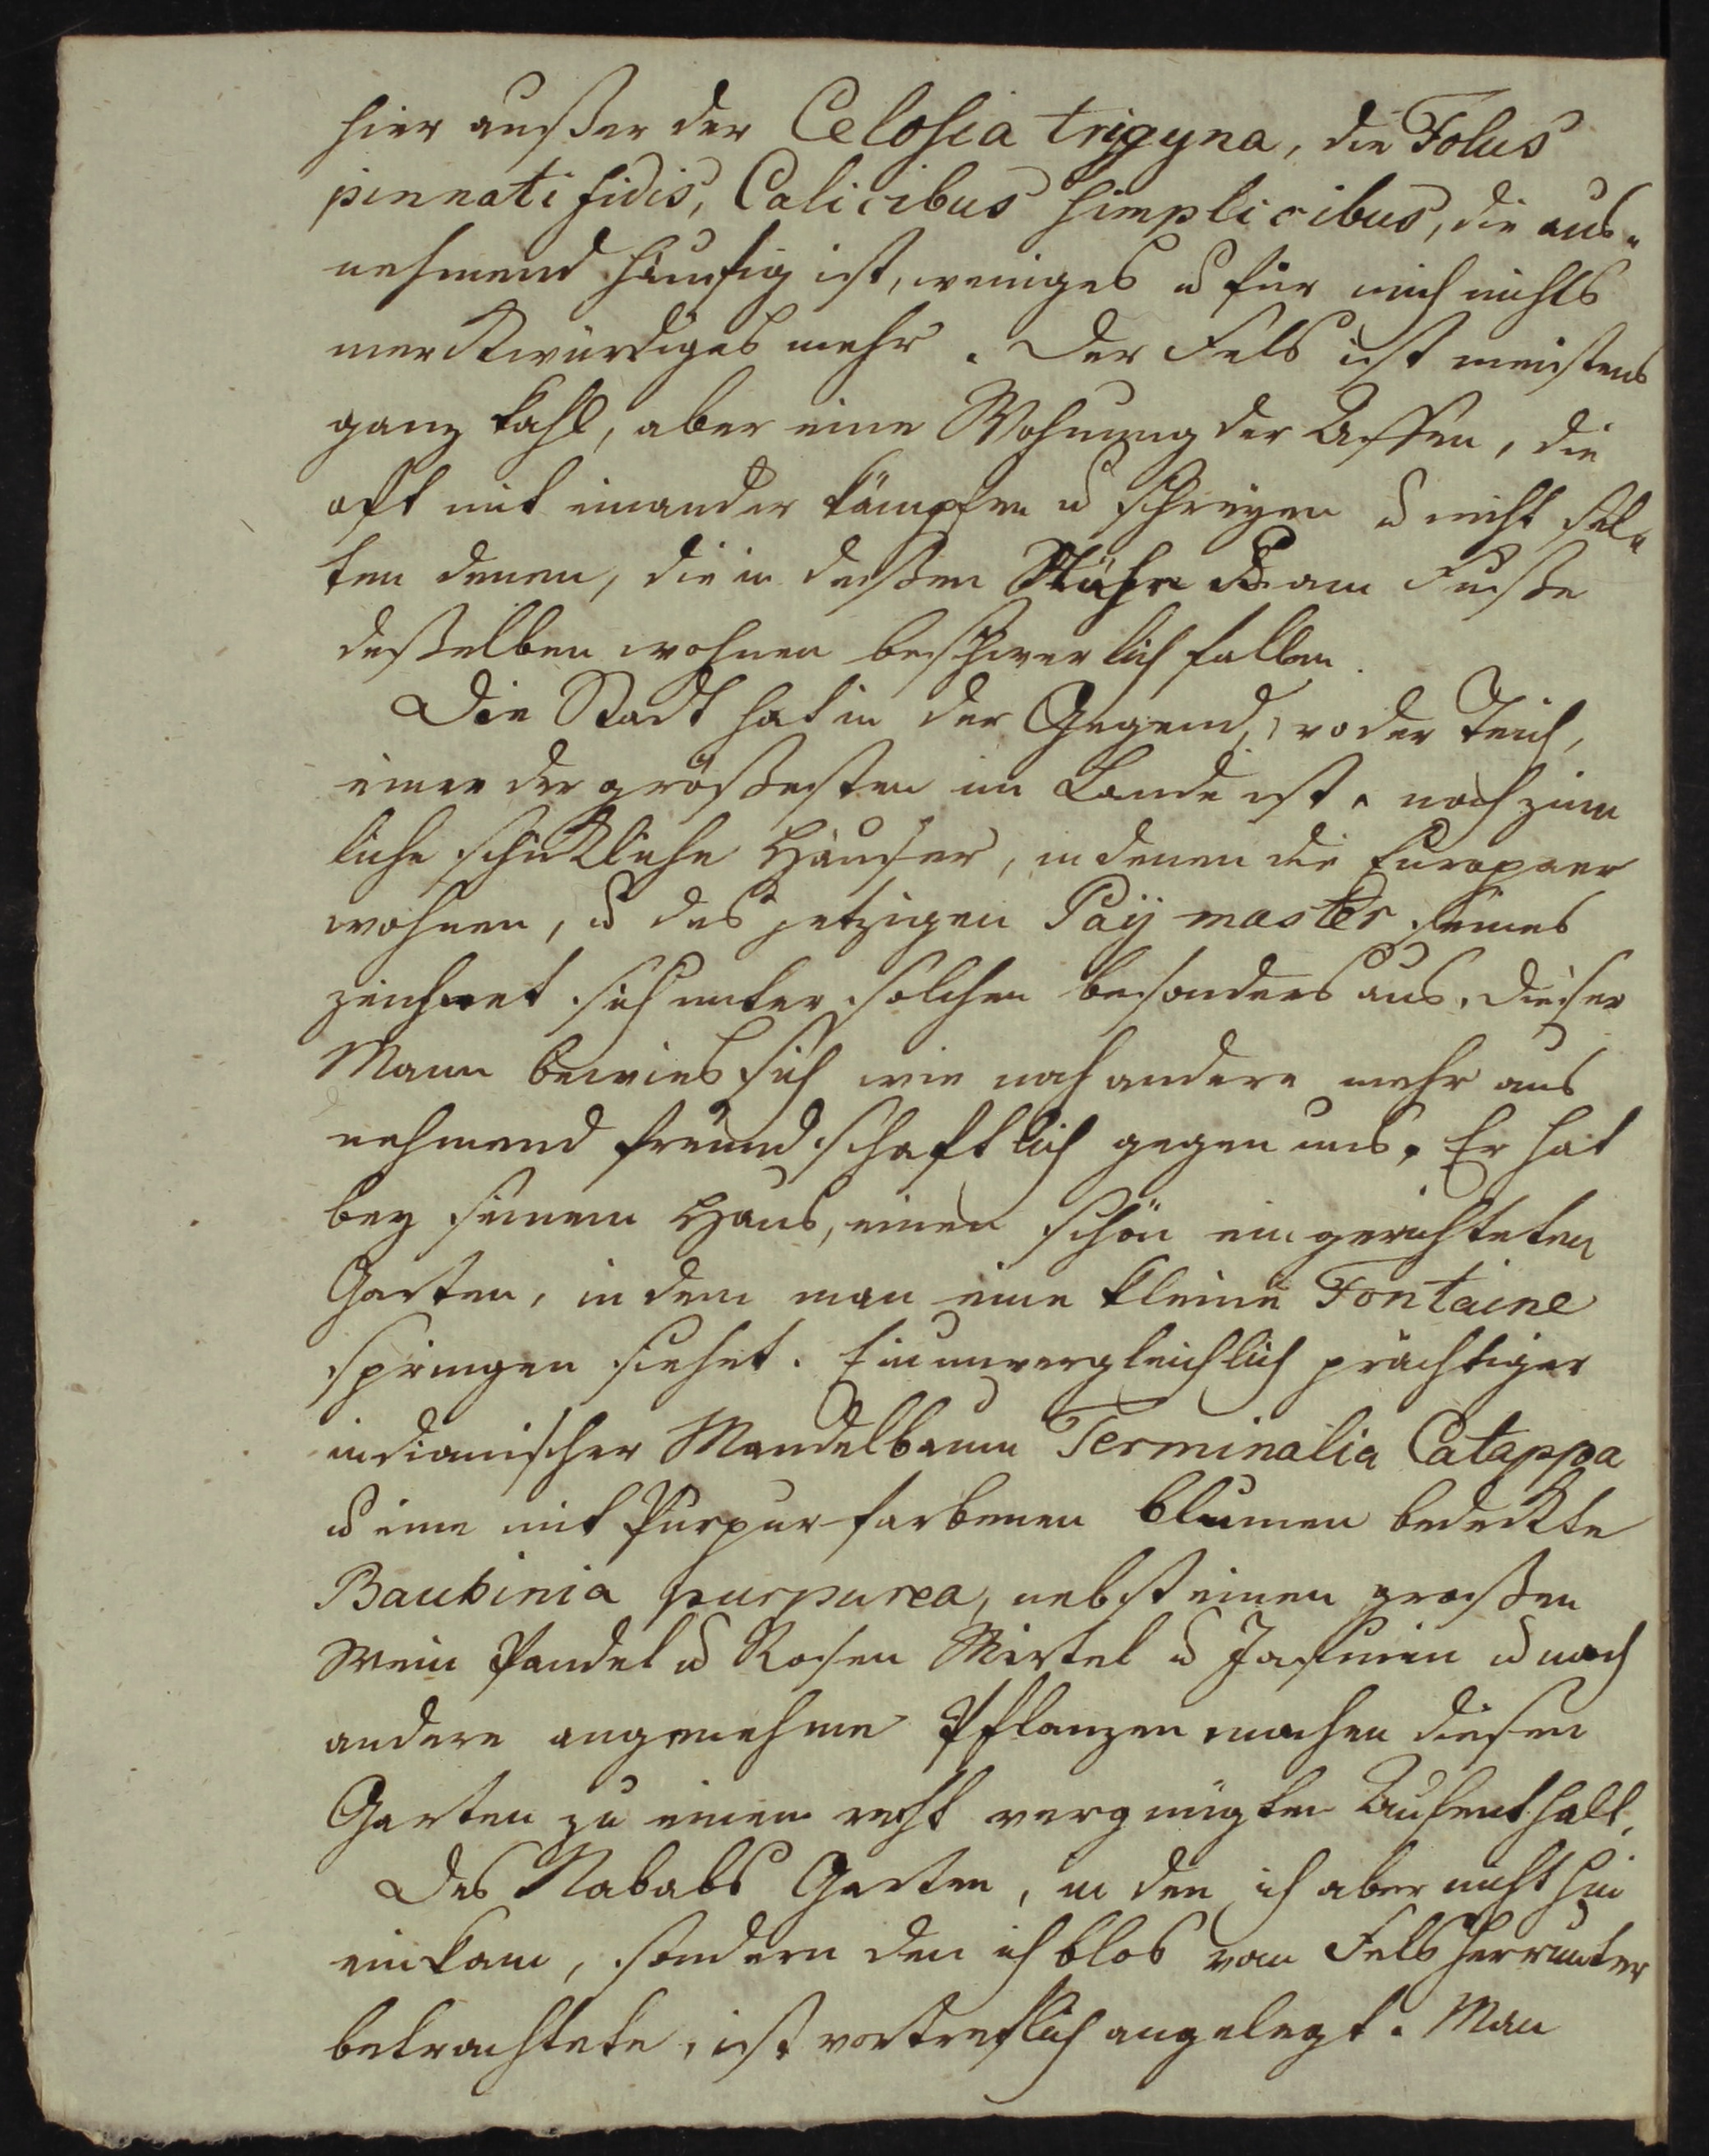 hier außer der Celosia trigyna, die Folus
pinnatifidis, Calicibus simplicibus, die aus-
nehmend häufig ist, weniges u für mich nichts
merckwürdiges mehr. Der Fels ist meistens
ganz kahl, aber eine Wohnung der Affen, die
oft mit einander kämpfen u schreyen u nicht sel-
ten denen, die in deßen Nähe am Fuße
deßelben wohnen beschwerlich fallen.
Die Stadt hat in der Gegend, wo der Teich,
einer der größesten im Lande ist, noch ziem
liche schickliche Häuser, in denen die Europaer
wohnen, u des jetzigen Paymaster seines
zeichnet sich unter solchen besonders aus. Dieser
Mann bewies sich wie noch andere mehr aus
nehmend freundschaftlich gegen uns. Er hat
bey seinem Haus, einen schön eingerichteten
Garten, in dem man eine kleine Fontaine
springen siehet. Ein unvergleichlich prächtiger
indianischer Mandelbaum Terminalia Catappa
u eine mit Purpurfarbenen blumen bedeckte
Bauhinia purpurea, nebst einen großen
Wein Pandel u Rosen Mirtel u Jasmin u noch
andere angenehme Pflanzen machen diesen
Garten zu einem recht vergnügten Aufenthalt.
Des Nababs Garten, in den ich aber nicht hin
einkam, sondern den ich blos vom Fels herrunter
betrachtete, ist vortreflich angelegt. Man